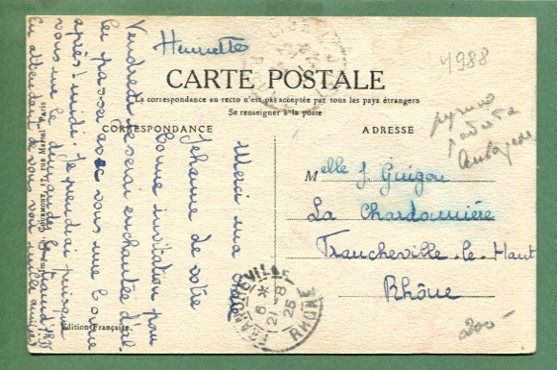 Henriette
4988
CARTE POSTALE
La correspondance au recto n'est pas acceptée par tous les pays étrangers
Se renseigner à la poste
CORRESPONDANCE
ADRESSE
Merci ma chère
Jehanne de votre
bonne invitation pour
Vendredi je serai enchantée d'al-
ler passer avec vous une bonne
après-midi. Je prendrai puisque
vous me le demandez le
En attendant de vous voir
Melle J. Guigou
La Chardonnière
Francheville-le-Haut
Rhône
FRANCHEVILLE
6 *
21-8
25
RHÔNE
200-
Édition Française